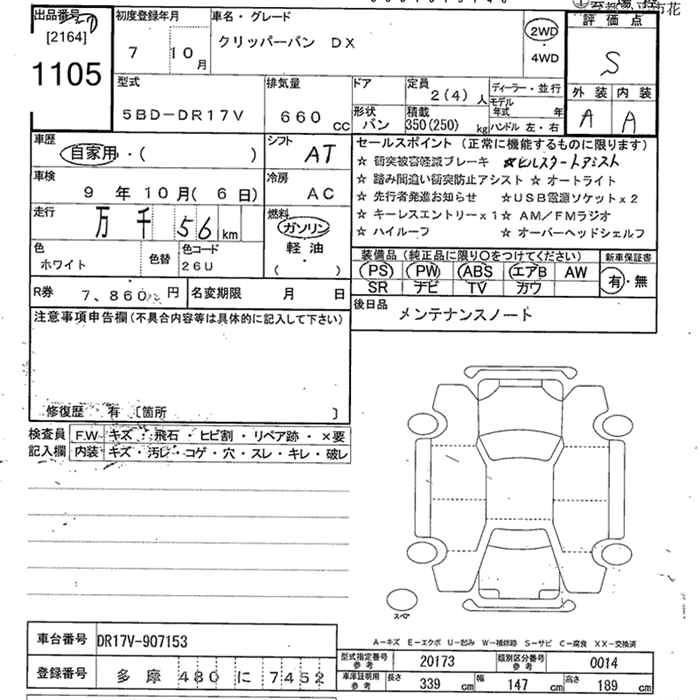 出品番号
[2164]
1105
初度登録年月
7 10月
車名・グレード
クリッパーバン DX
2WD
・
4WD
評価点
S
外装 内装
A A
型式
5BD-DR17V
排気量
660 cc
ドア
形状
バン
定員
2(4) 人
積載
350(250) kg
ディーラー・並行
モデル年式 年
ハンドル 左・右
車歴
自家用・( )
シフト
AT
車検
9 年 10 月( 6 日)
冷房
AC
走行
万 千 56 km
燃料
ガソリン
軽油
( )
色
ホワイト
色替
色コード
26U
R券 7,860 円
名変期限 月 日
セールスポイント (正常に機能するものに限ります)
☆ 衝突被害軽減ブレーキ ☆ヒルスタートアシスト
☆ 踏み間違い衝突防止アシスト ☆ オートライト
☆ 先行者発進お知らせ ☆USB電源ソケットx2
☆ キーレスエントリーx1 ☆ AM/FMラジオ
☆ ハイルーフ ☆ オーバーヘッドシェルフ
装備品 (純正品に限り○をつけてください)
PS PW ABS エアB AW
SR ナビ TV カワ
新車保証書
有・無
後日品
メンテナンスノート
注意事項申告欄(不具合内容等は具体的に記入して下さい)
修復歴 有 〔箇所 〕
検査員
記入欄
F.W キズ・飛石・ヒビ割・リペア跡・×要
内装 キズ・汚レ・コゲ・穴・スレ・キレ・破レ
スペア
A-キズ E-エクボ U-凹み W-補修跡 S-サビ C-腐食 XX-交換済
車台番号 DR17V-907153
登録番号 多摩 480 に 7452
型式指定番号
参考
20173
類別区分番号
参考
0014
車庫証明用
参考
長さ 339 cm 幅 147 cm 高さ 189 cm